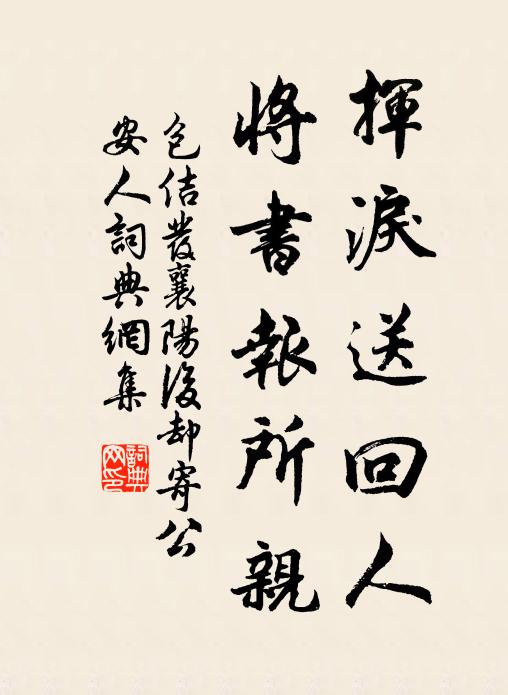 揮淚送回人
將書報所親
包佶發襄陽後却寄公
安人詞典網集
詞典网印